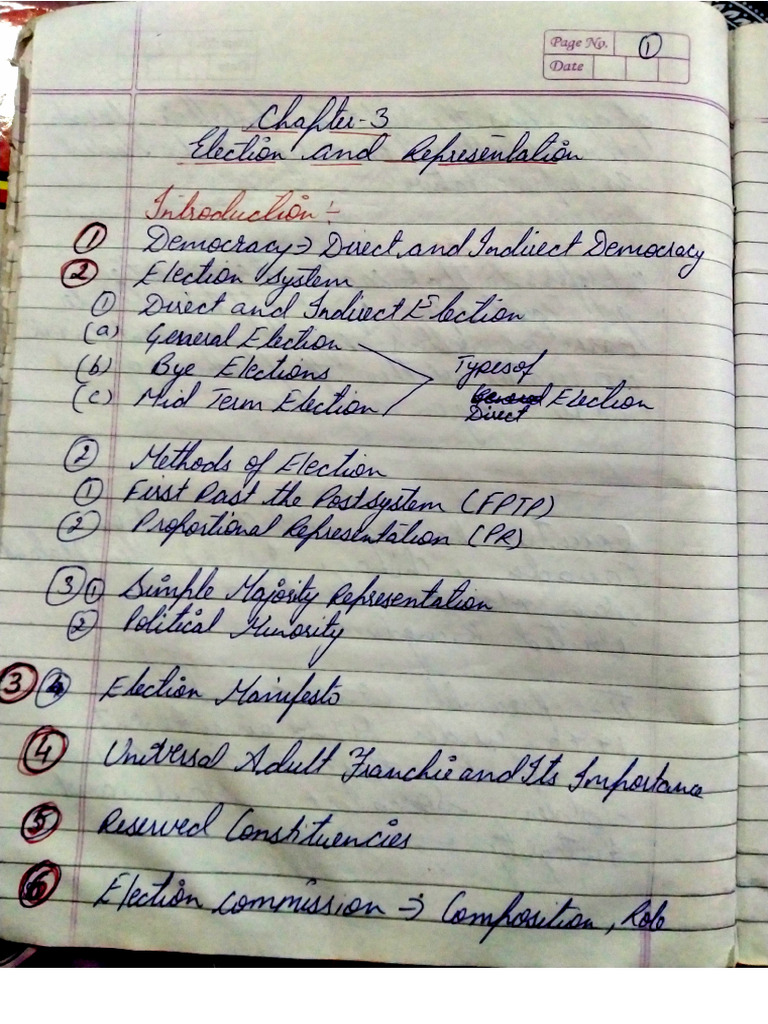 Page No. 1
Date
Chapter-3
Election and Representation
Introduction :-
1 Democracy → Direct and Indirect Democracy
2 Election System
1 Direct and Indirect Election
(a) General Election
(b) Bye Elections
(c) Mid Term Election
Types of
Election
Direct
2 Methods of Election
1 First Past the Post system (FPTP)
2 Proportional Representation (PR)
3 1 Simple Majority Representation
2 Political Minority
3 Election Manifesto
4 Universal Adult Franchie and Its Importance
5 Reserved Constituencies
6 Election commission → Composition, Role